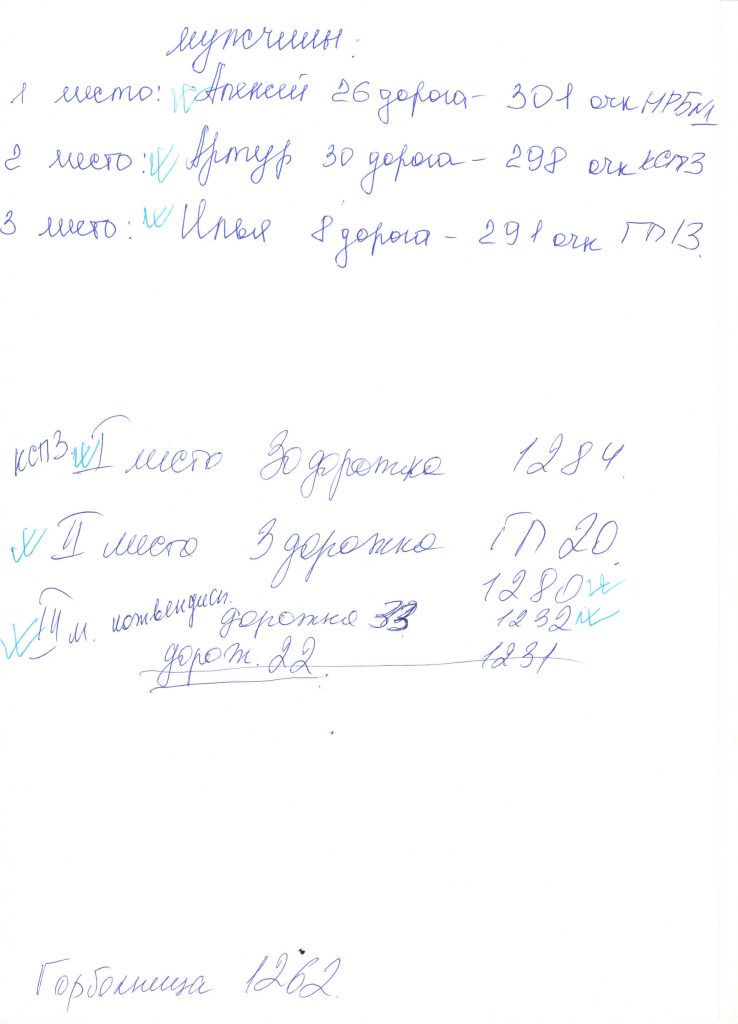 мужчины:
1 место: Алексей 26 дорога - 301 очк НРБ№1
2 место: Артур 30 дорога - 298 очк КСПЗ
3 место: Илья 8 дорога - 291 очк ГП 13.
КСПЗ. I место 30 дорожка 1284.
II место 3 дорожка ГП 20.
1280
III м. кожвендисп. дорожка 33 1232
дорож. 22 1231
Горбольница 1262.